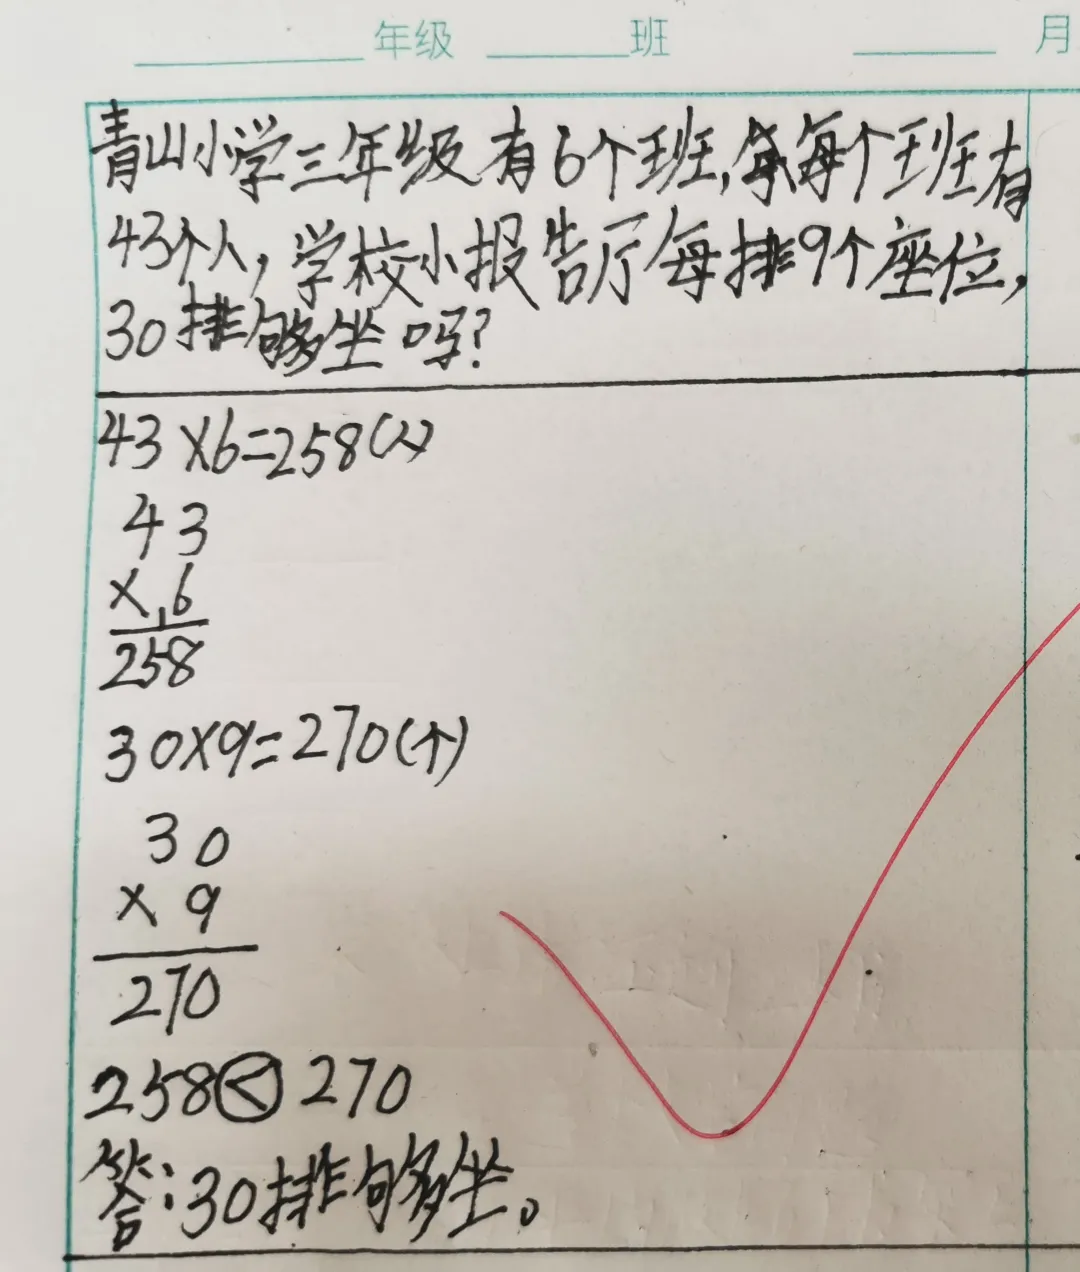 年级 班 月
青山小学三年级有6个班,每个班有
43个人,学校小报告厅每排9个座位,
30排够坐吗?
43×6=258(人)
43
×6
258
30×9=270(个)
30
×9
270
258<270
答:30排够坐。